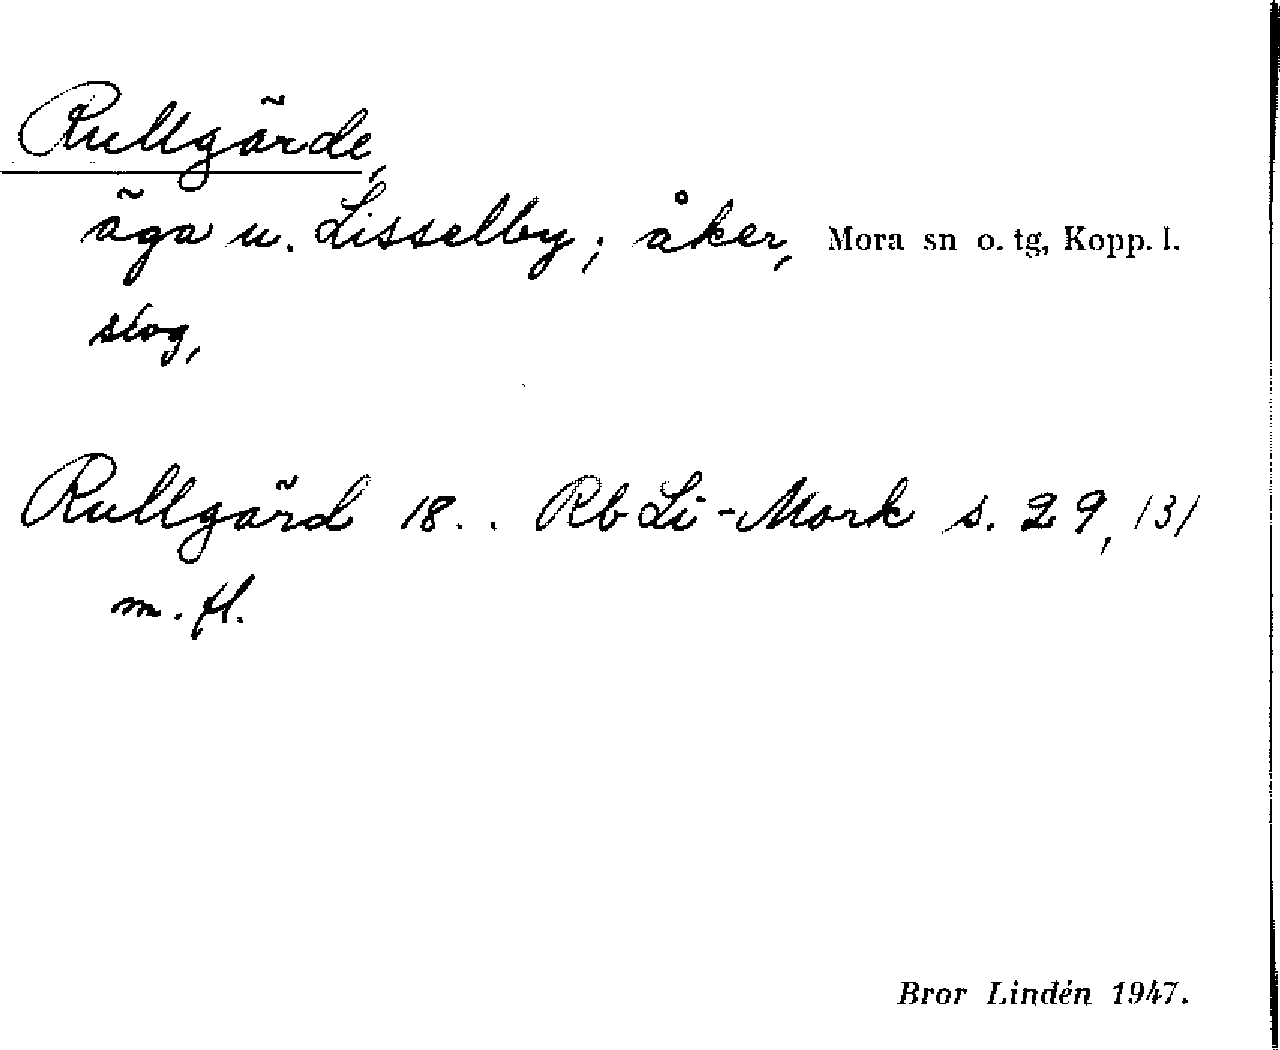 Rullgärde,
äga u. Lisselby; åker, Mora sn o. tg, Kopp. l.
slog,
Rullgärd 18.. Rb Li-Mork s. 29, 131
m. fl.
Bror Lindén 1947.